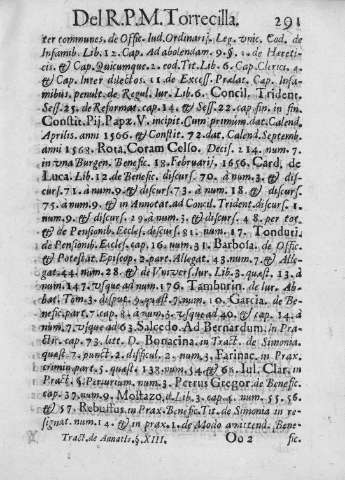 Del R.P.M. Torrecilla. 291
ter communes. de Offic. Iud. Ordinarij. Leg. vnic. Cod. de
Infamib. Lib. 12. Cap. Ad abolendam. 9. §. 1. de Hæreti-
cis, & Cap. Quicumque. 2. eod. Tit. Lib. 6. Cap. Clerici. 4.
& Cap. Inter dilectos. 11. de Excess. Prælat. Cap. Infa-
mibus, penult. de Regul. Iur. Lib. 6. Concil. Trident.
Sess. 25. de Reformat. cap. 14. & Sess. 22. cap. fin. in fin.
Constit. Pij. Papæ V. incipit. Cum primùm. dat. Calend.
Aprilis. anni 1566. & Constit. 72. dat. Calend. Septemb.
anni 1568. Rota, Coram Celso. Decis. 214. num. 7.
in vna Burgen. Benefic. 18. Februarij. 1656. Card. de
Luca. Lib. 12. de Benefic. discurs. 70. à num. 3. & dis-
curs. 71. à num. 9. & discurs. 73. à num. 18. & discurs.
75. à num. 9. & in Annotat. ad Concil. Trident. discurs. 1.
num. 9. & discurs. 29. à num. 3. & discurs. 48. per tot.
& de Pensionib. Eccles. discurs. 81. num. 17. Tonduti.
de Pensionib. Eccles. cap. 16. num. 31. Barbosa. de Offic.
& Potestat. Episcop. 2. part. Allegat. 43. num. 7. & Alle-
gat. 44. num. 28. & de Vniuers. Iur. Lib. 3. quæst. 13. à
num. 147. vsque ad num. 176. Tamburin. de Iur. Ab-
bat. Tom. 3. disput. 9. quæst. 7. num. 10. Garcia. de Be-
nefic. part. 7. cap. 8. à num. 3. vsque ad 40. & cap. 14. à
num. 7. vsque ad 63. Salcedo. Ad Bernardum. in Pra-
ctic. cap. 73. litt. D. Bonacina. in Tract. de Simonia.
quæst. 7. punct. 2. difficul. 2. num. 3. Farinac. in Prax.
crimin. part. 5. quæst. 138. num. 54. & 68. Iul. Clar. in
Pract. §. Periurium. num. 3. Petrus Gregor. de Benefic.
cap. 37. num. 9. Mostazo. Lib. 3. cap. 4. num. 55. 56.
& 57. Rebuffus. in Prax. Benefic. Tit. de Simonia in re-
signat. num. 14. & in prax. 1. de Modo amittend. Bene-
Tract. de Annatis. §. XIII. Oo 2 fic.